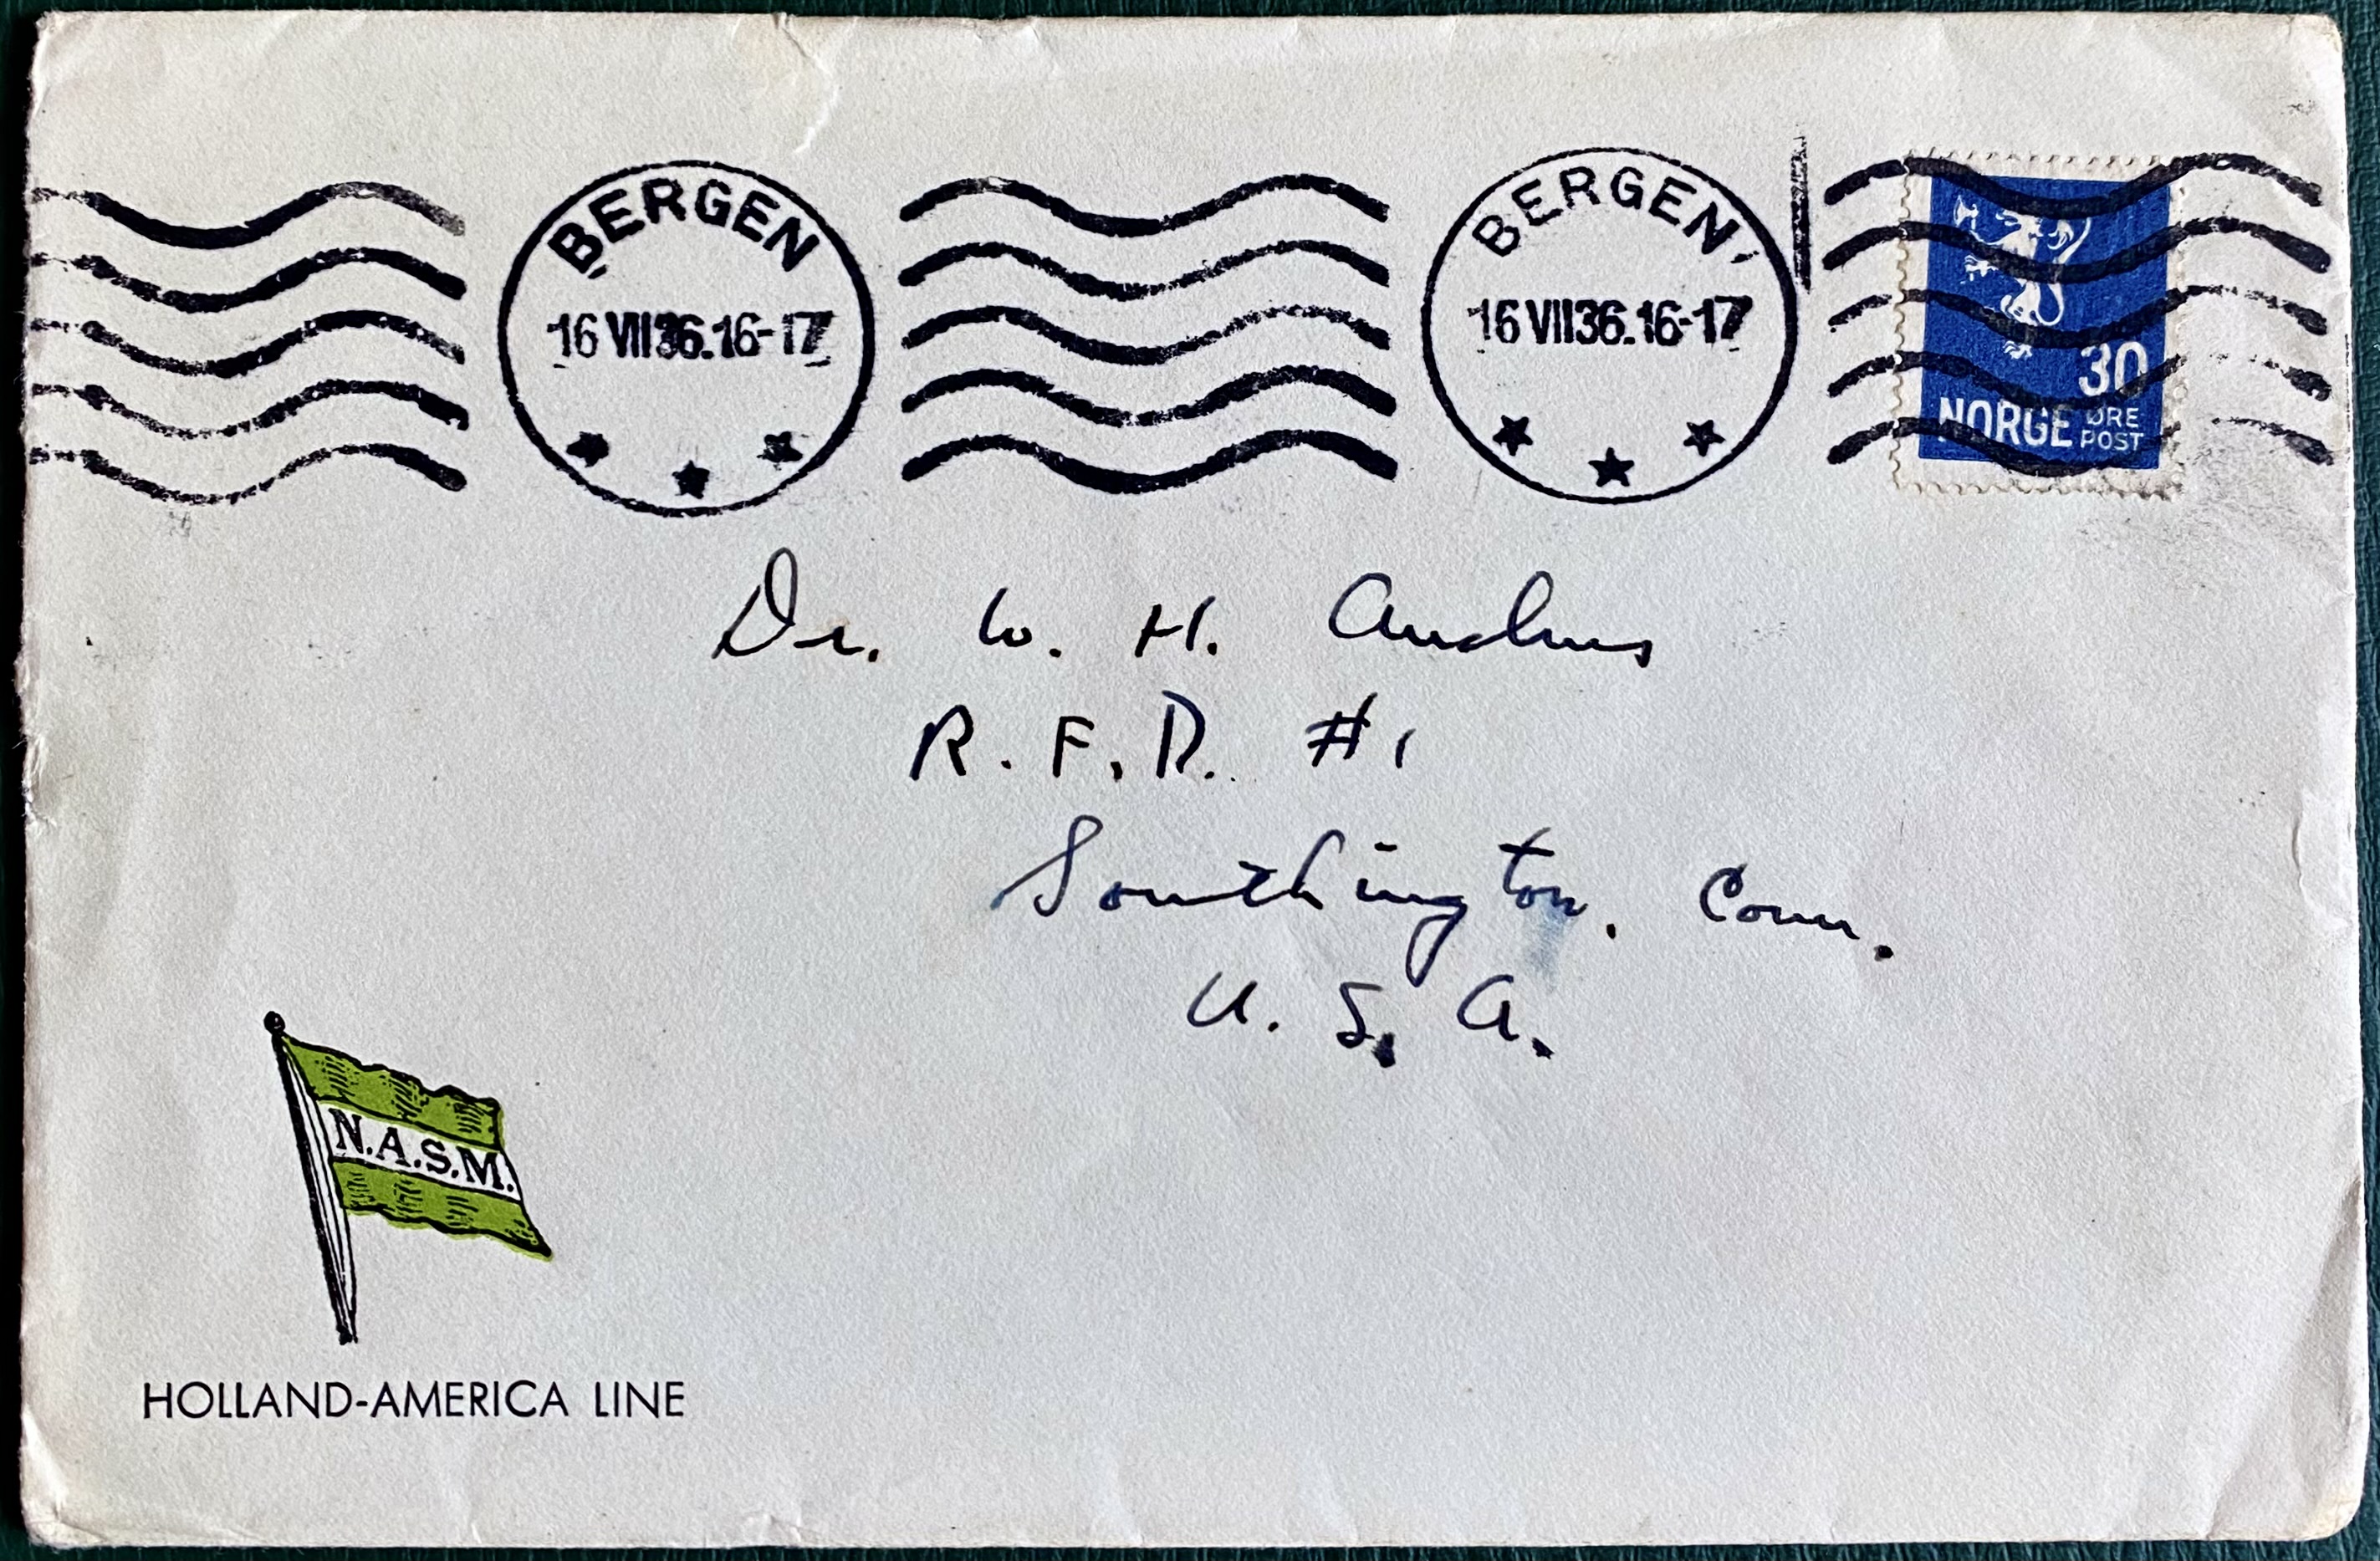 BERGEN
16 VII 36.16-17
BERGEN
16 VII 36.16-17
30
NORGE ØRE
POST
Dr. W. H. Andrus
R. F. D. #1
Southington. Conn.
U. S. A.
N.A.S.M.
HOLLAND-AMERICA LINE